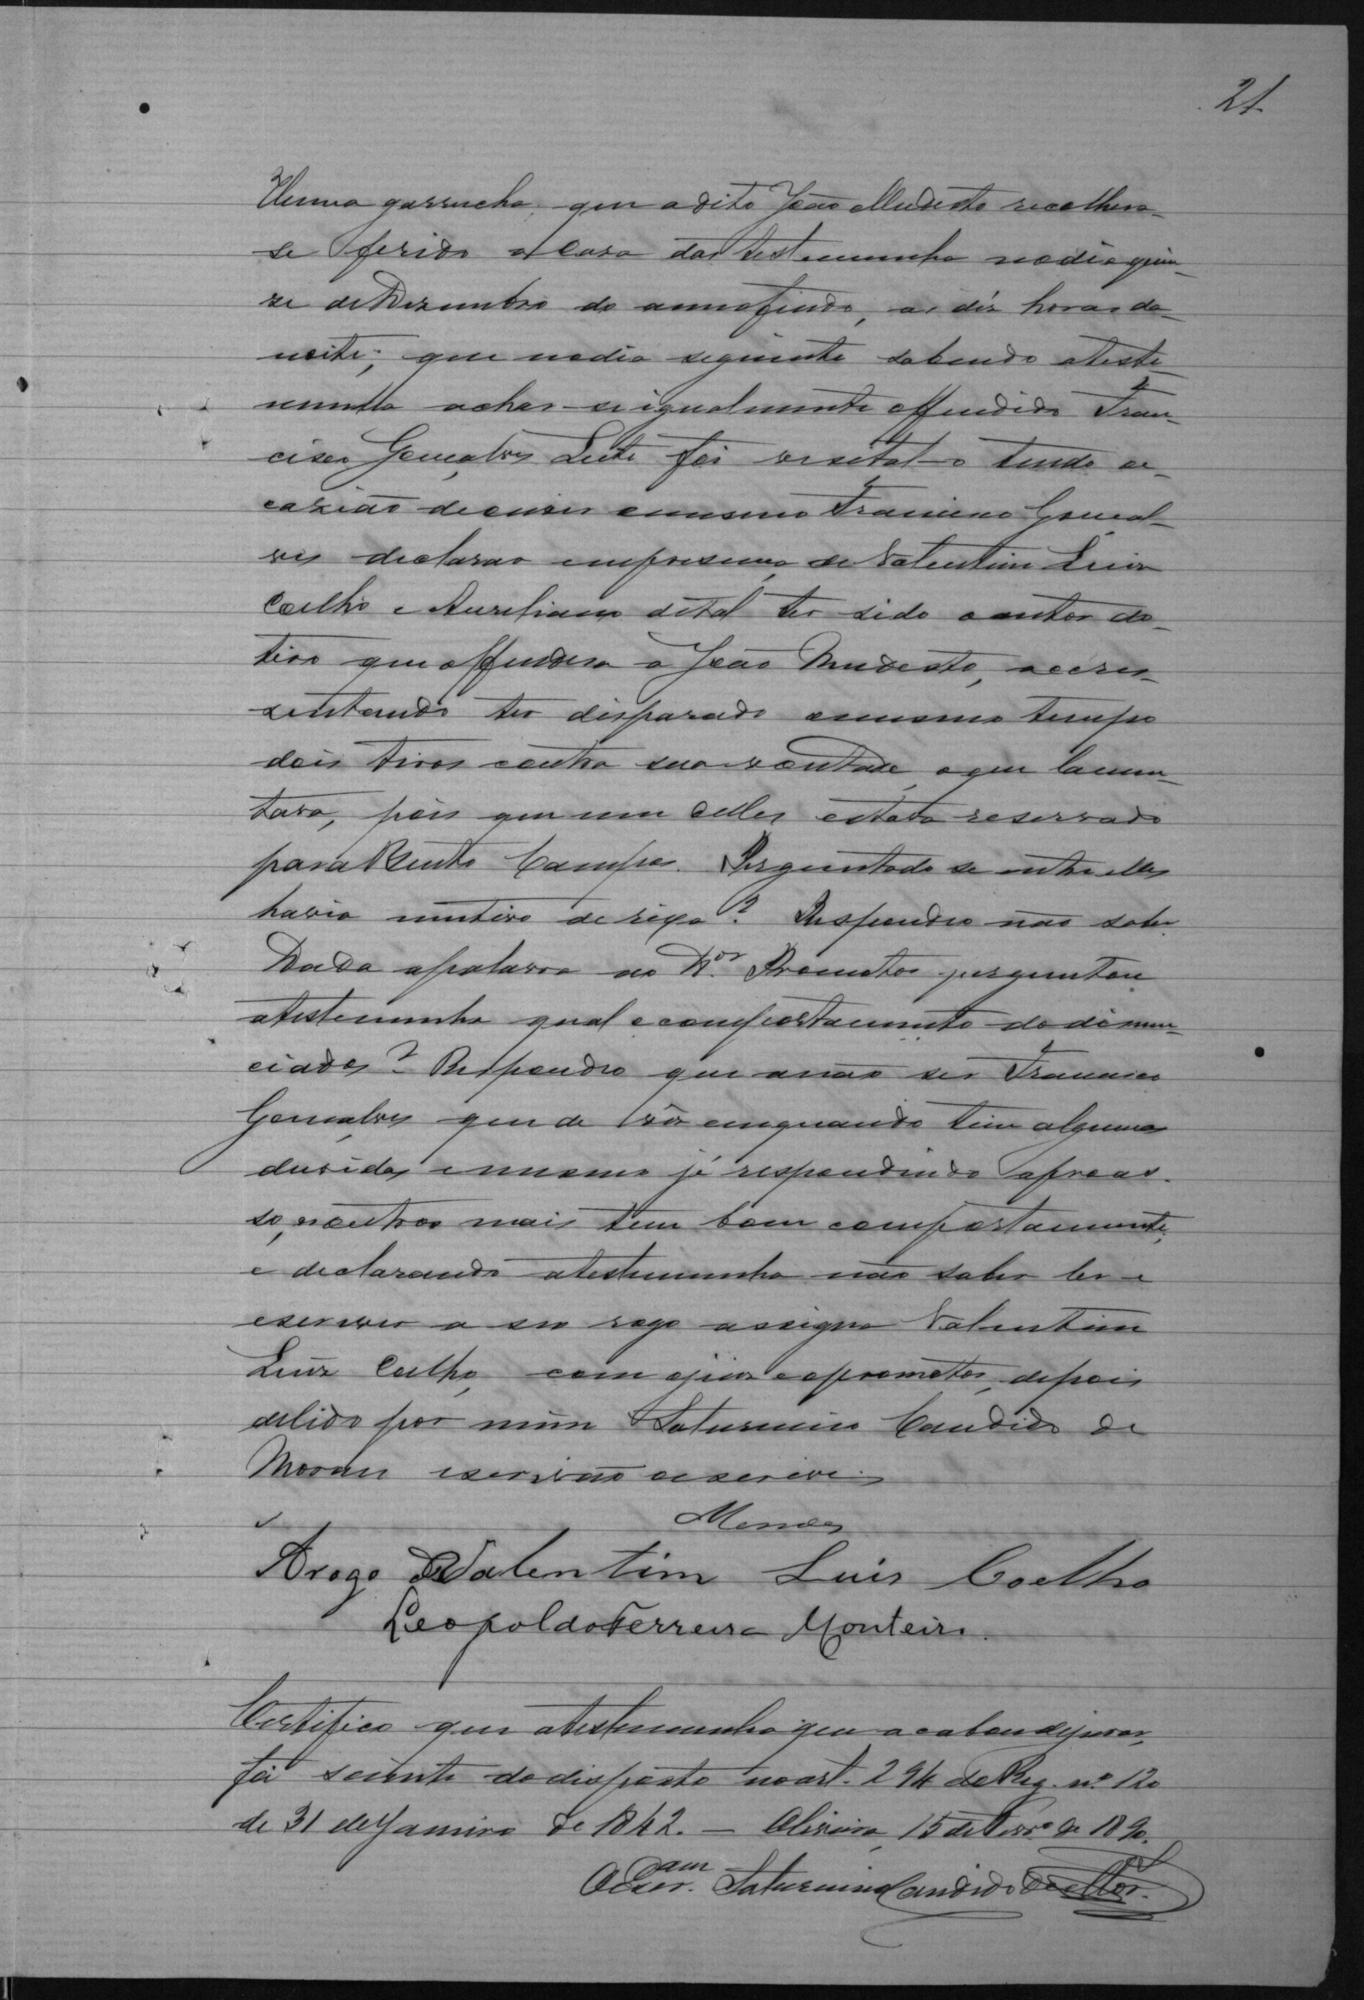 21
Huma garrucha, que o dito João Modesto recolhera-
se ferido a casa da testemunha no dia quin-
ze de Dezembro do anno findo, as dés horas da
noite; que no dia seguinte sabendo a teste-
munha achar-se igualmente offendido Fran-
cisco Gonçalves Leite foi vesital-o tendo oc-
cazião de ouvir o mesmo Francisco Gonçal-
ves declarar em presença de Valentim Luiz
Coelho e Aureliano de tal ter sido o autor do
tiro que offendera a João Modesto, accres-
sentando ter disparado ao mesmo tempo
dois tiros contra sua vontade, o que lamen-
tava, pois que um delles estava reservado
para Bento Campos. Perguntado se entre elles
havia motivo de rixa? Respondeo não saber.
Dada a palavra ao Dor. Promotor perguntou
a testemunha qual o comportamento do denun-
ciados? Respondeo que a não ser Francisco
Gonçalves que de vez em quando tem algumas
duvidas e mesmo já respondendo a proces-
so, os outros mais tem bom comportamento;
e declarando a testemunha não saber ler e
escrever a seo rogo assigna Valentim
Luiz Coelho, com o juiz e o promotor, depois
de lido por mim Saturnino Candido de
Moraes escrivão o escrevi.
Mendes
Arogo de Valentim Luis Coelho
Leopoldo Ferreira Monteiro.
Certifico que a testemunha que acabou de jurar,
foi sciente do disposto no art. 294 do Reg. no 120
de 31 de Janeiro de 1842. — Oliveira, 15 de Fevro de 1890.
O Escr. am Saturnino Candido de Mor.